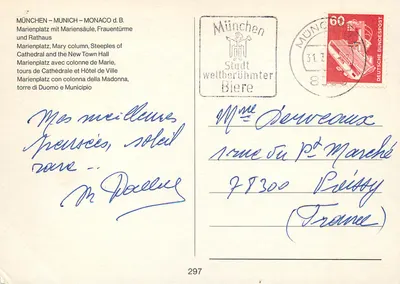 MÜNCHEN – MUNICH – MONACO d. B.
Marienplatz mit Mariensäule, Frauentürme
und Rathaus
Marienplatz, Mary column, Steeples of
Cathedral and the New Town Hall
Marienplatz avec colonne de Marie,
tours de Cathédrale et Hôtel de Ville
Marienplatz con colonna della Madonna,
torre di Duomo e Municipio
Mes meilleures
pensées, soleil
rare...
München
Stadt
weltberühmter
Biere
MÜN
31.
8
60
DEUTSCHE BUNDESPOST
Mme
1 rue du Pt Marché
78300 Poissy
(France)
297